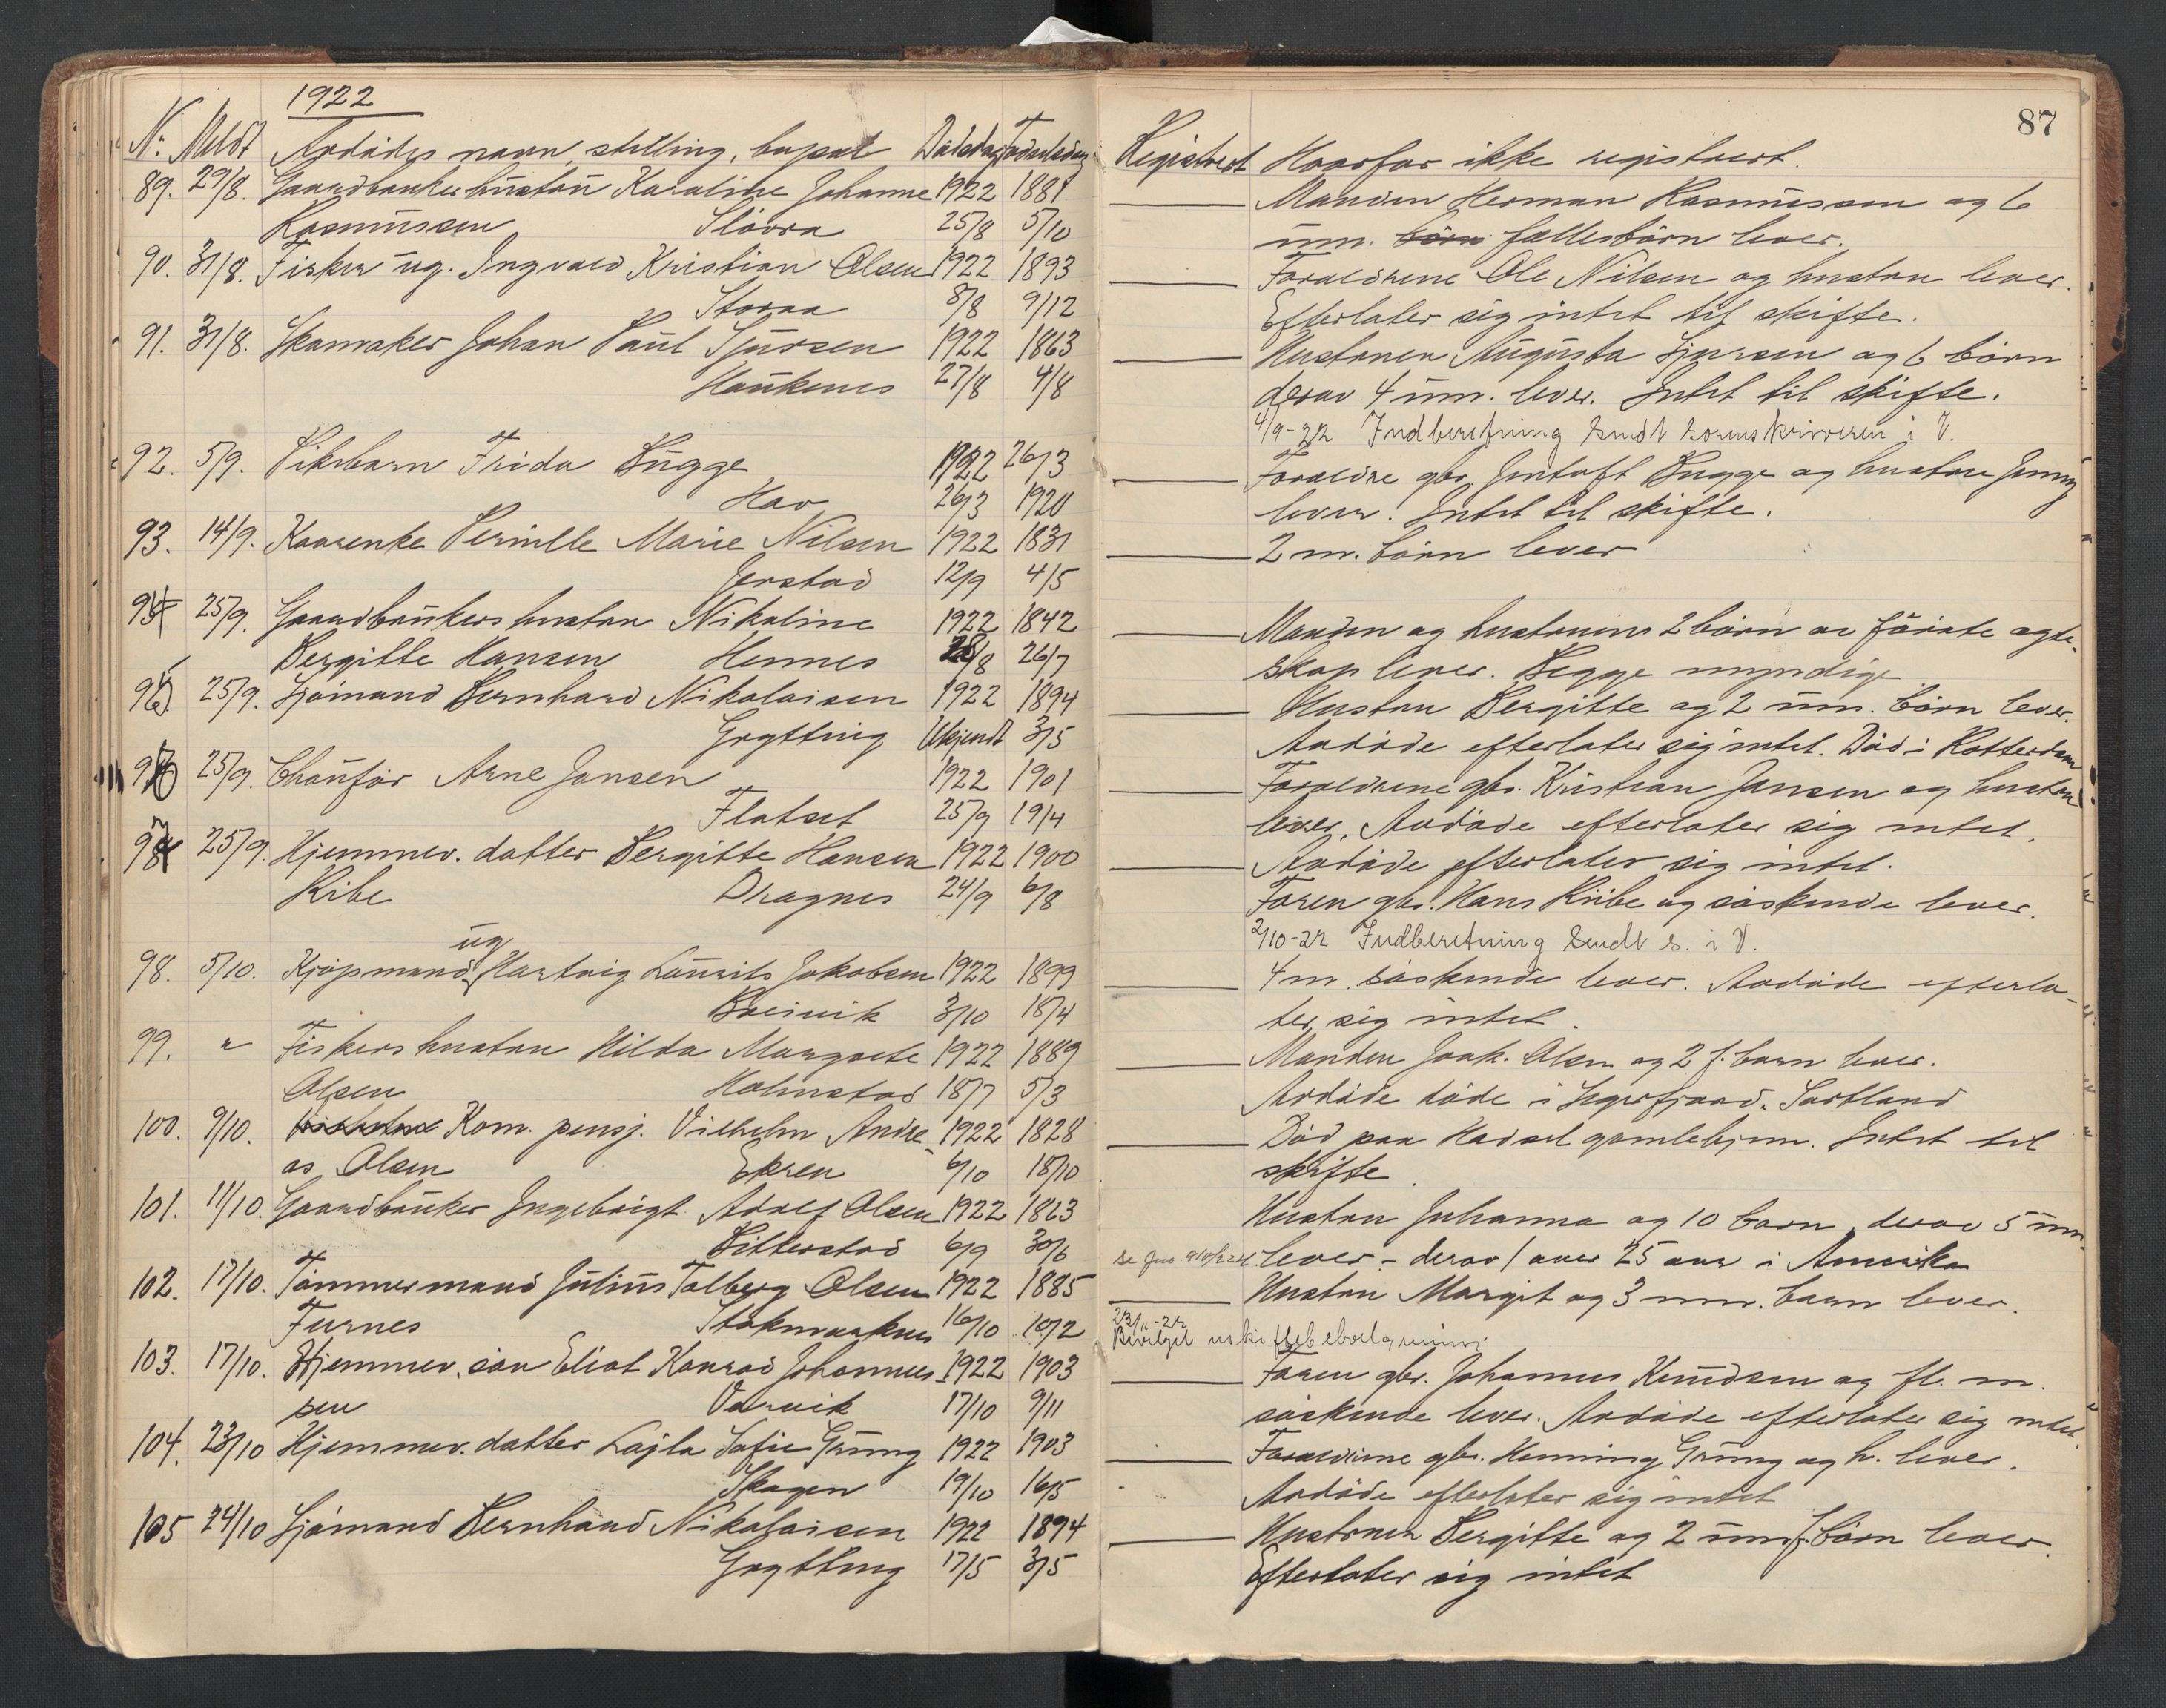 1922
Nr. Meldt Avdødes navn, stilling, bopæl Dødsdag Fødselsdag
89. 29/8. Gaardbrukerhustru Karoline Johanne 1922 1881
Rasmussen 25/8 5/10
90. 31/8. Fisker ug. Ingvald Kristian Olsen 1922 1893
8/8 9/12
91. 31/8. Skomaker Johan Paul Sjursen 1922 1863
Haukenes 27/8 4/8
92. 5/9. Pikebarn Frida Bugge 1922 26/3
Hav 26/3 1920
93. 14/9. Kaarenke Pernille Marie Nilsen 1922 1831
Jerstad 12/9 4/5
94 25/9. Gaardbrukers hustru Nikoline 1922 1842
Bergitte Hansen Hennes 28/8 26/7
95 25/9. Sjømand Bernhard Nikolaisen 1922 1894
Grytting Ukjendt 3/5
96 25/9. Chauffør Arne Jansen 1922 1901
Flatset 25/9 19/4
97 25/9. Hjemmev. datter Bergitte Hansen 1922 1900
Kibe Dragnes 24/9 6/8
ug
98. 5/10. Kjøpmand Hartvig Laurits Jakobsen 1922 1899
Breivik 3/10 18/4
99. " Fiskers hustru Hilda Margrete 1922 1889
Olsen Holmstad 18/7 5/3
100. 9/10. Kom. pensj. Vilhelm Andre- 1922 1828
as Olsen Ekren 6/10 18/10
101. 11/10. Gaardbruker Ingebrigt Adolf Olsen 1922 1863
Bitterstad 6/9 30/6
102. 17/10. Tømmermand Julius Tolberg Olsen 1922 1885
Furnes Stokmarknes 16/10 10/2
103. 17/10. Hjemmev. søn Eliot Konrad Johannes- 1922 1903
sen Vervik 17/10 9/11
104. 23/10 Hjemmev. datter Lajla Sofie Grüng 1922 1903
Skagen 19/10 16/5
105 24/10 Sjømand Bernhard Nikolaisen 1922 1894
Grytting 17/5 3/5
87
Registrert Hvorfor ikke registrert.
Manden Herman Rasmussen og 6
um. børn fællesbørn lever.
Forældrene Ole Nilsen og hustru lever.
Efterlater sig intet til skifte.
Hustruen Augusta Sjursen og 6 børn
derav 4 um. lever. Intet til skifte.
4/9-22 Indberetning sendt sorenskriveren i V.
Forældre gbr. Gentoft Bugge og hustru Jenny
lever. Intet til skifte.
2 m. børn lever
Manden og hustruens 2 børn av første ægte-
skap lever. Begge myndige
Hustru Bergitte og 2 um. børn lever.
Avdøde efterlater sig intet. Død i Rotterdam
Forældrene gbr. Kristian Jansen og hustru
lever. Avdøde efterlater sig intet.
Avdøde efterlater sig intet.
Faren gbr. Hans Kiibe og søskende lever.
2/10-22 Indberetning sendt s. i V.
4 m. søskende lever. Avdøde efterla-
ter sig intet.
Manden Joak. Olsen og 2 f. barn lever.
Avdøde døde i Sortland
Død paa Hadsel gamlehjem. Intet til
skifte.
Hustru Johanna og 10 barn, derav 5 um.
lever - derav 1 over 25 aar i Amerika
Hustru Margit og 3 um. barn lever.
23/11-22
Bevilget uskiftebevilgning
Faren gbr. Johannes Knudsen og fl. m.
søskende lever. Avdøde efterlater sig intet.
Forældrene gbr. Henning Grüng og h. lever.
Avdøde efterlater sig intet
Hustruen Bergitte og 2 um f. børn lever.
Efterlater sig intet